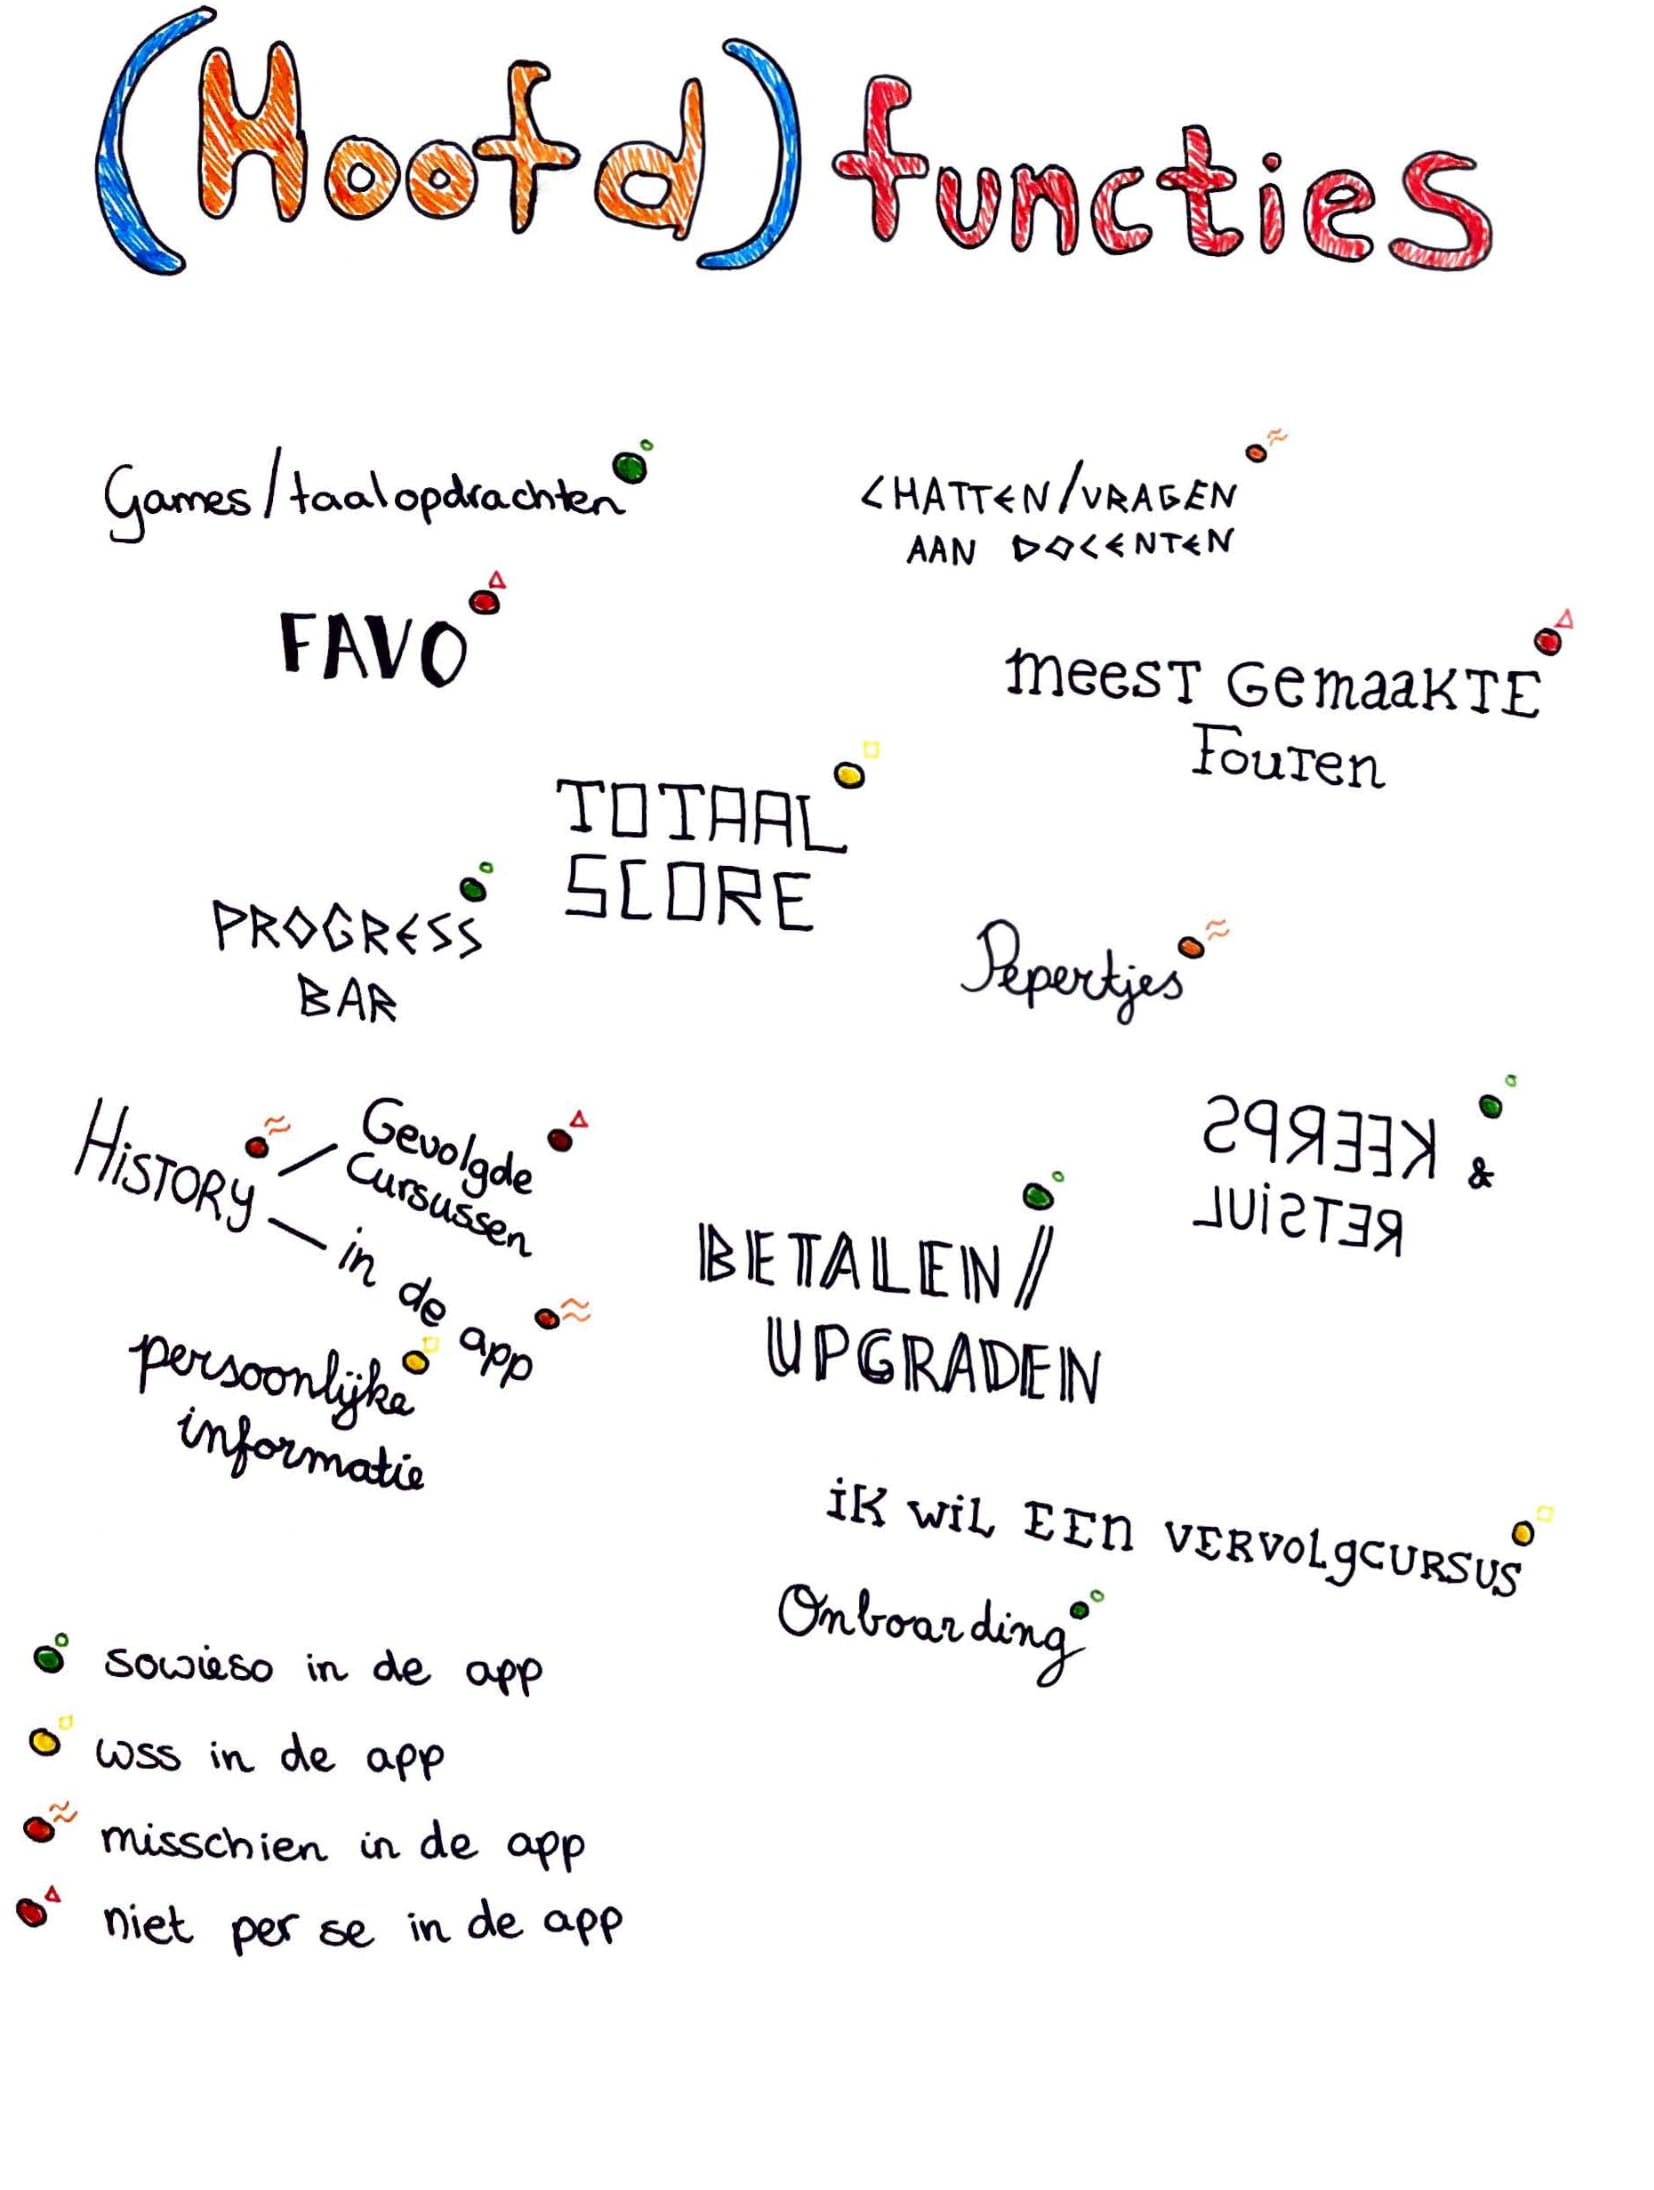 (Hoofd) functies
Games/taalopdrachten
CHATTEN/VRAGEN
AAN DOCENTEN
FAVO
MEEST GEMAAKTE
FOUTEN
TOTAAL
SCORE
PROGRESS
BAR
Pepertjes
HiSTORY
Gevolgde
cursussen
in de app
SPREEK &
LUiSTER
BETALEN/
UPGRADEN
persoonlijke
informatie
iK WiL EEN VERVOLgCURSUS
Onboarding
sowieso in de app
wss in de app
misschien in de app
niet per se in de app